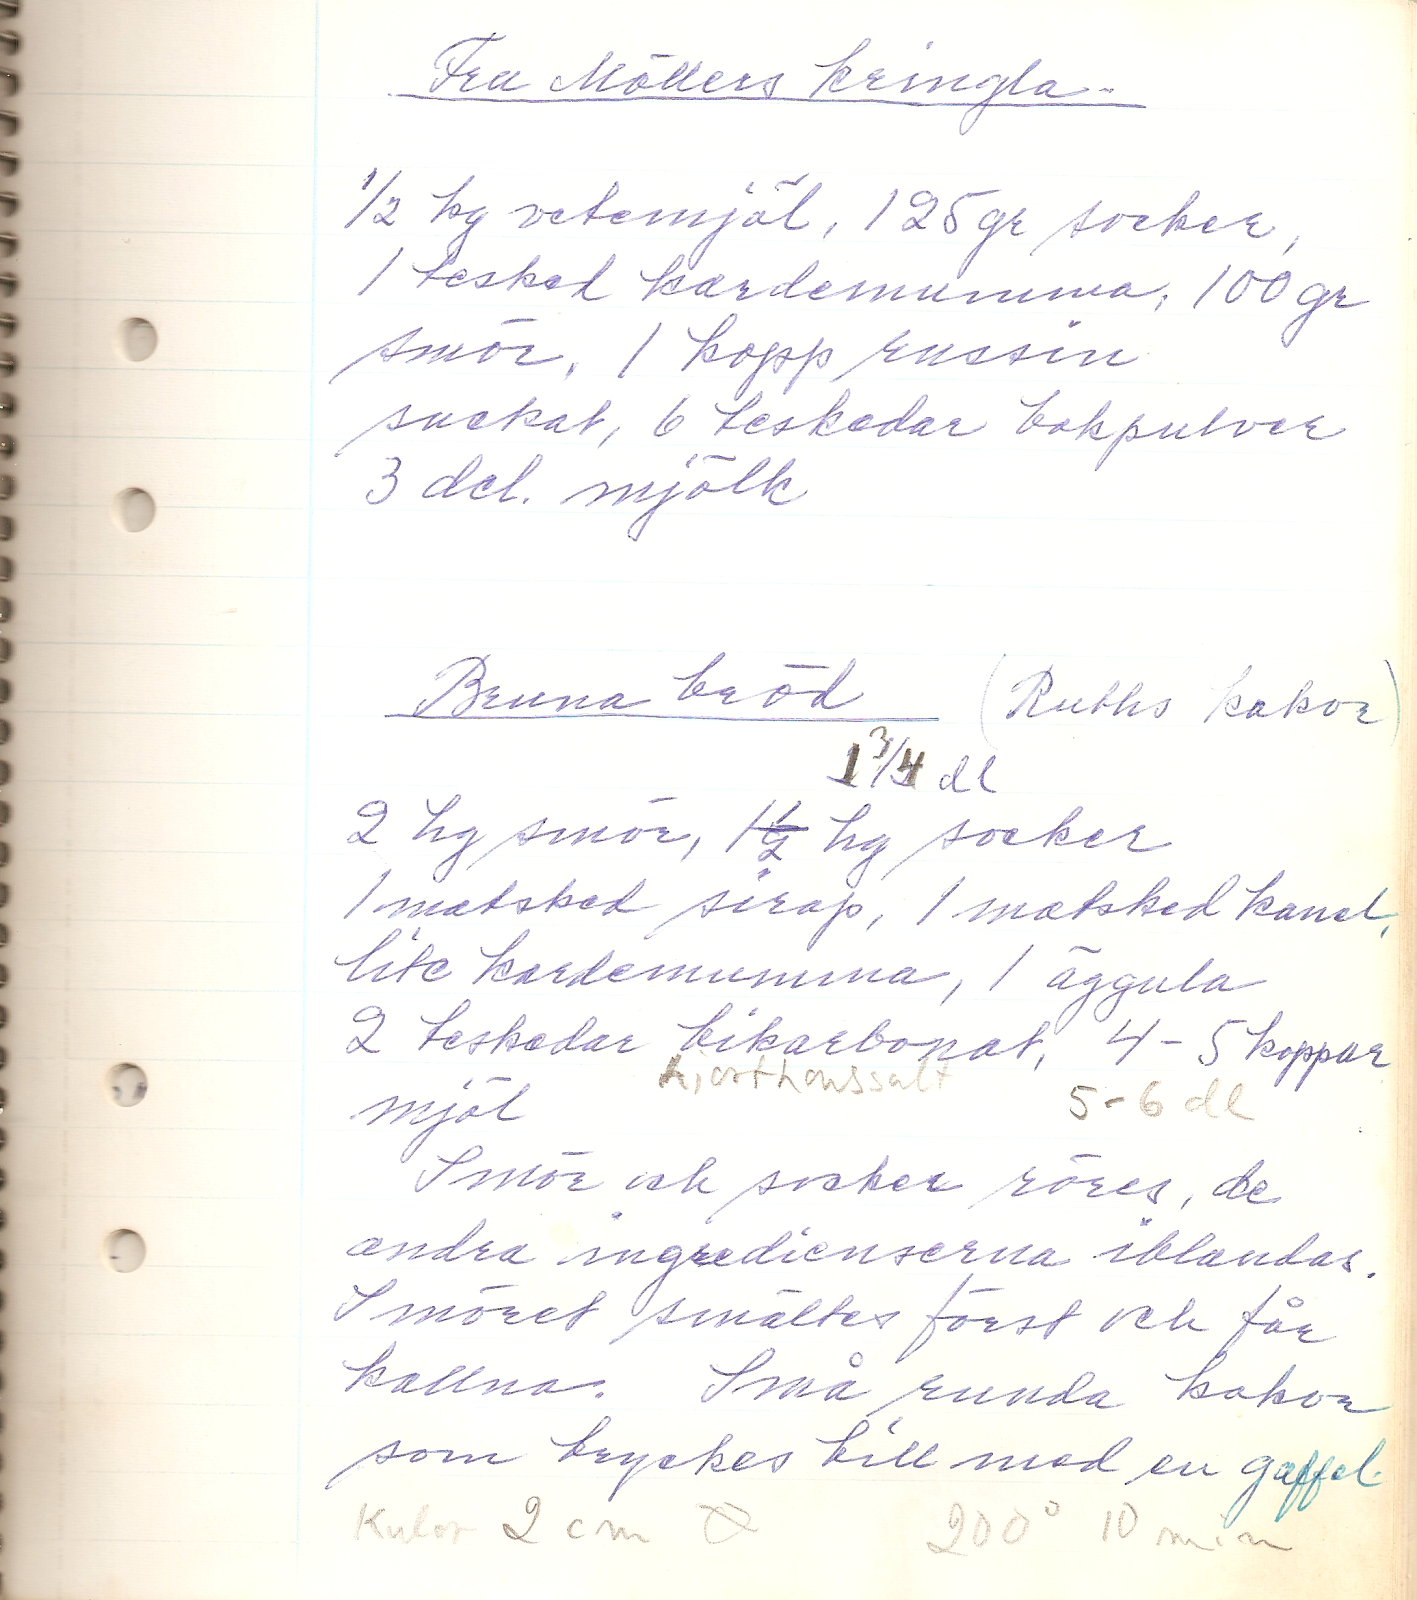 Fru Möllers kringla
1/2 kg vetemjöl, 125 gr socker,
1 tesked kardemumma, 100 gr
smör, 1 kopp russin
suckat, 6 teskedar bakpulver
3 del. mjölk
Bruna bröd (Ruths kakor)
1 3/4 dl
2 hg smör, 1 1/2 hg socker
1 matsked sirap, 1 matsked kanel,
lite kardemumma, 1 äggula
2 teskedar bikarbonat, 4-5 koppar
hjorthonssalt 5-6 dl
mjöl
Smör och socker röres, de
andra ingredienserna iblandas.
Smöret smältes först och får
kallna. Små runda kakor
som tryckes till med en gaffel.
Kulor 2 cm 200° 10 min